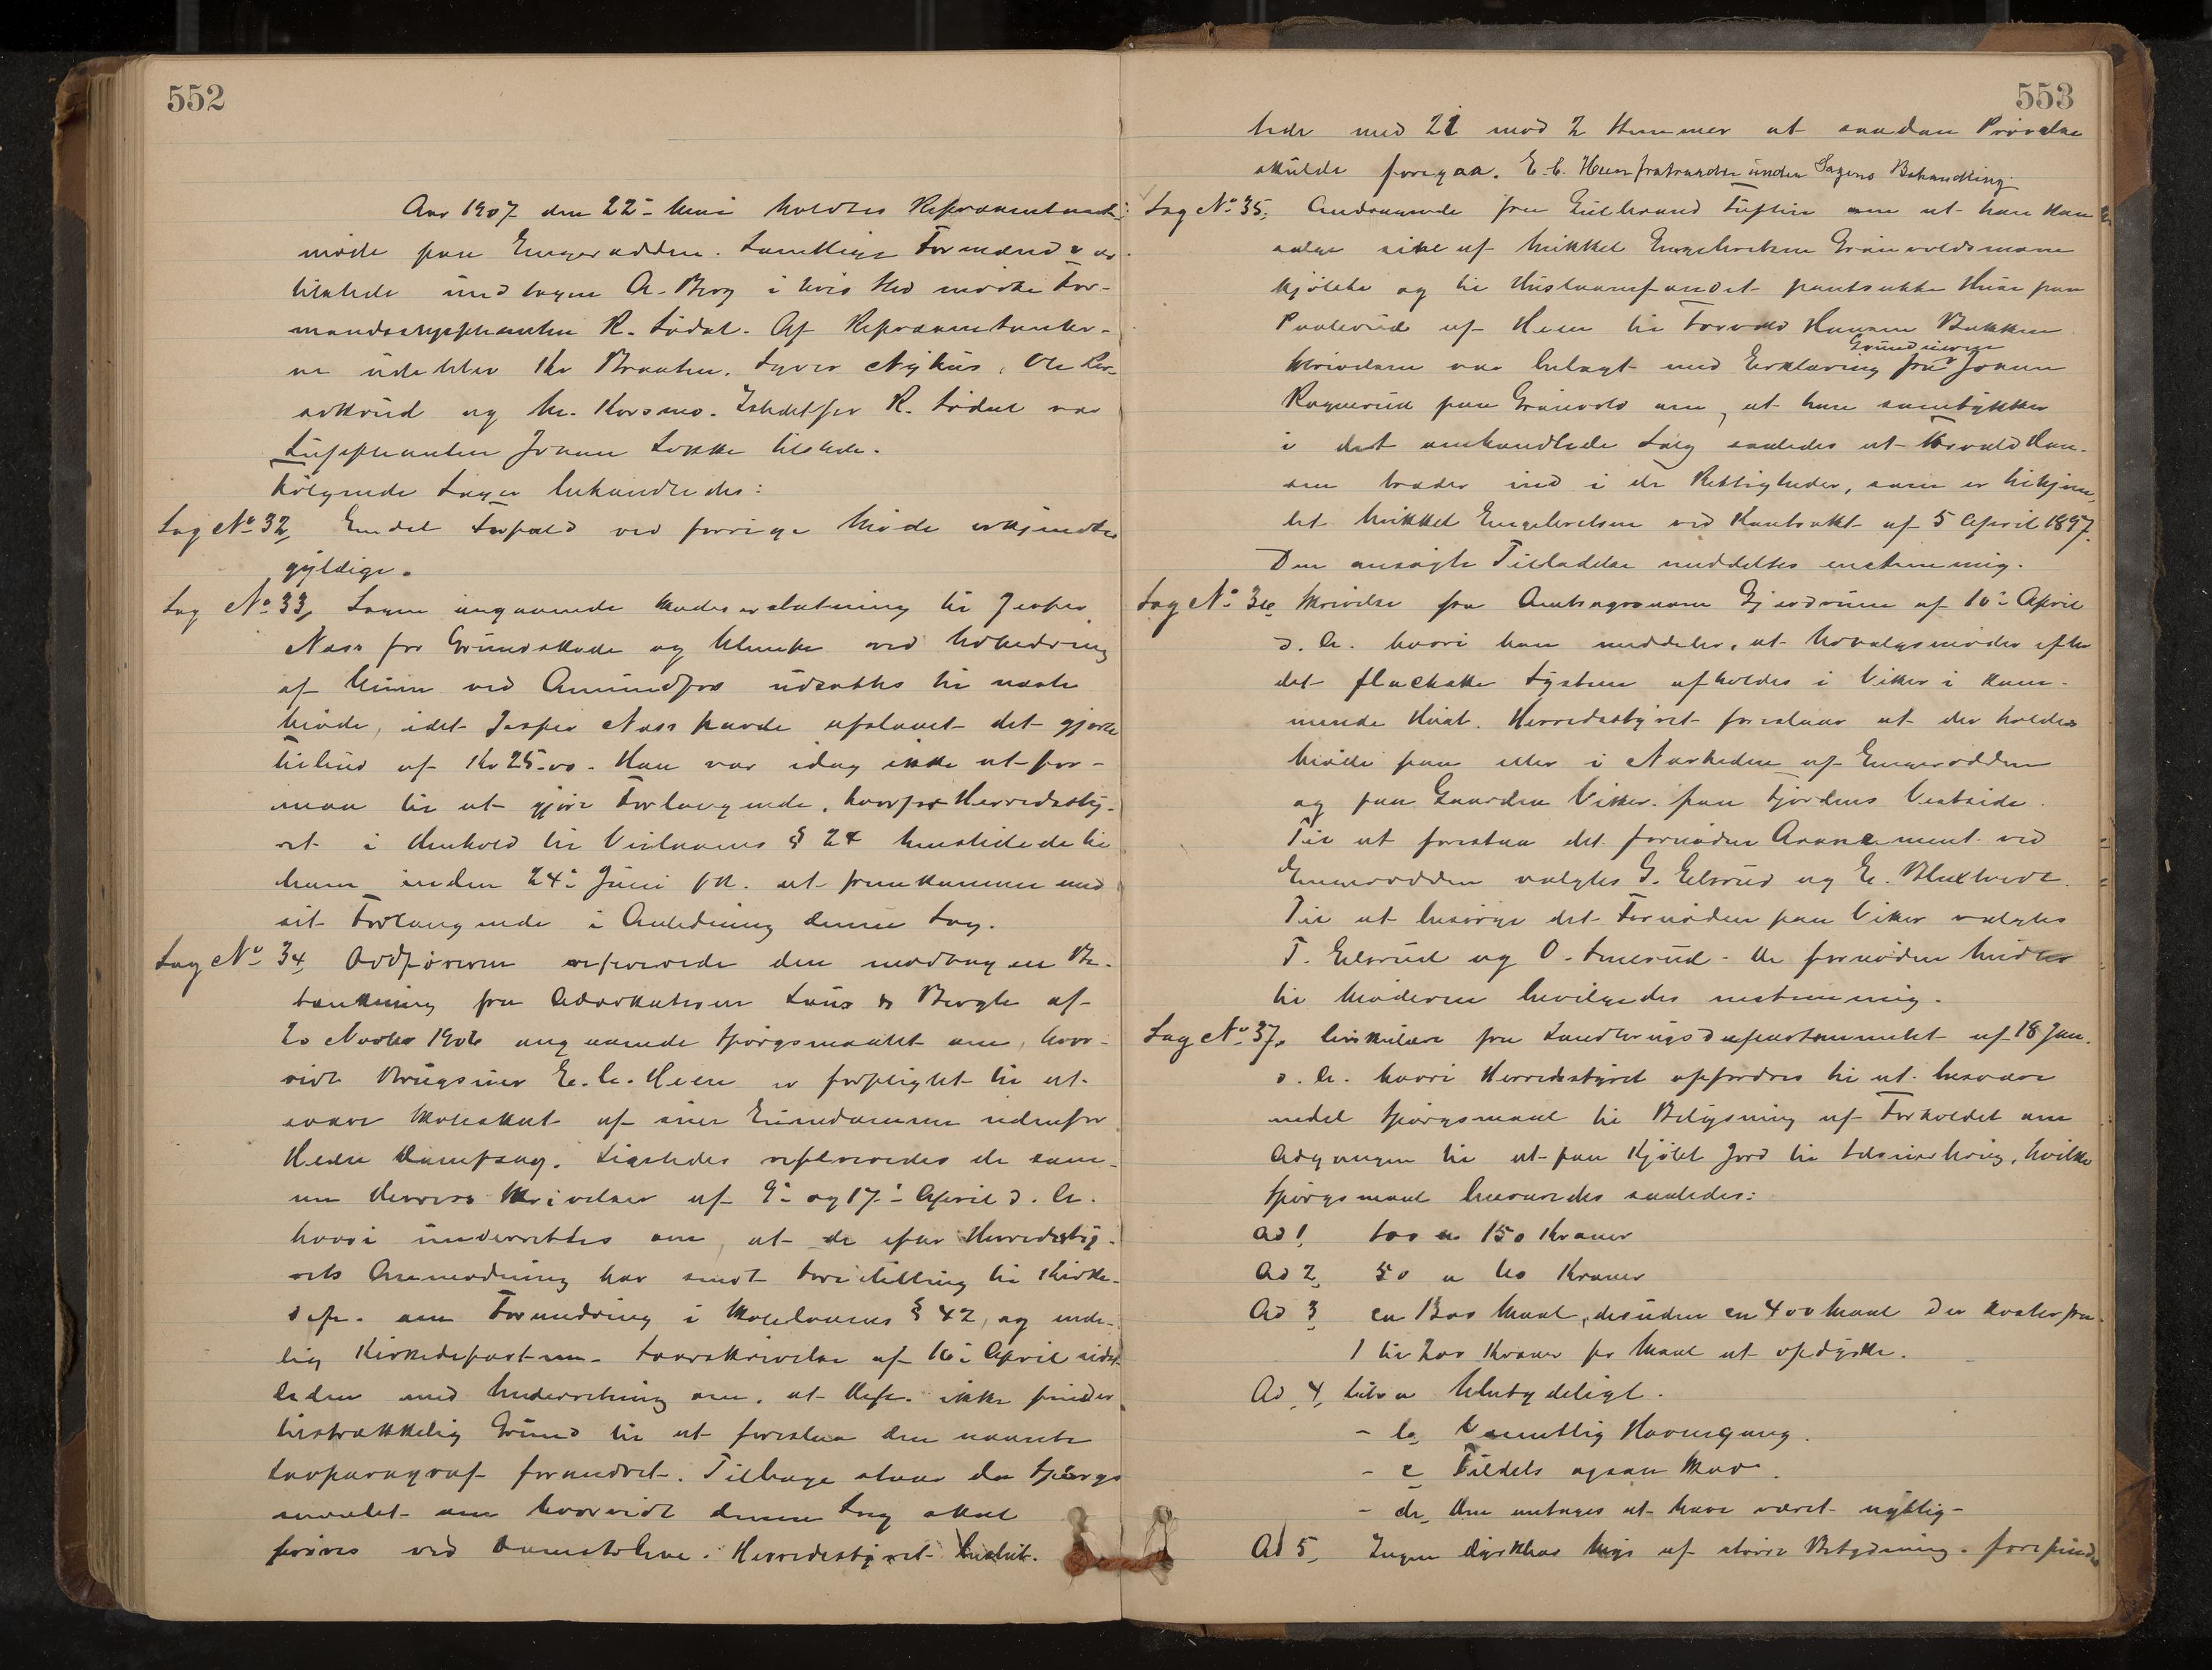 552
Aar 1907 den 22de Mai holdtes Repræsentant-
møde paa Engerodden. Samtlige Formænd var
tilstede undtagen A. Berg i hvis Sted mødte For-
mandssuppleanten K. Sødal. Af Repræsentanter-
ne udeblev Kr Braaten, Syver Nyhus, Ole
og M. Korsmo. Istedetfor K. Sødal var
Suppleanten Johan Løkke tilstede.
Følgende Sager behandledes:
Sag No 32, Endel Forfald ved forrige Møde erkjendtes
gyldige.
Sag No 33, Sagen angaaende Skadeserstatning til Jesper
Næss for Grundskade og Ulempe ved Udbedring
af Veien ved Amundfos udsattes til næste
Møde, idet Jesper Næss havde afslaaet det gjorte
Tilbud af Kr 25.00. Han var idag ikke at for-
maa til at gjøre Forlangende, hvorfor Herredssty-
ret i Henhold til Veilovens § 24 henstillede til
ham inden 24de Juni at fremkomme med
sit Forlangende i Anledning denne Sag.
Sag No 34, Ordføreren refererede den modtagne Be-
tænkning fra Advokaterne & Bergh af
20 Novbr 1906 angaaende Spørgsmaalet om, hvor-
vidt Brugseier E. C. Heen er forpligtet til at
svare Skoleskat af sine Eiendomme udenfor
Heen Dampsag. Ligeledes refereredes de sam-
me Herrers Skrivelser af 9de og 17de April d. A.
hvori underrettes om, at de efter Herredssty-
rets Anmodning har sendt Forestilling til Kirke-
dep. om Forandring i Skolelovens § 42, og ende-
lig Kirkedepartem. Svarskrivelse af 16de April sidst-
leden med Underretning om, at Dep. ikke finder
tilstrækkelig Grund til at foreslaa den nævnte
Lovparagraf forandret. Tilbage staar da Spørgs
maalet om hvorvidt denne Sag skal
prøves ved Domstolene. Herredsstyret beslut-
553
tede med 21 mod 2 Stemmer at saadan Prøvelse
skulde foregaa. E. C. Heen fratraadte under Sagens Behandling
Sag No 35, Andragende fra Gulbrand Tuftin om at han kan
sælge sine af Mikkel Engebretsen Grønvoldsmoen
kjøbte og til Huslaanefondet pantsatte Huse paa
af Heen til Torvald Hansen Bakken
Grundeieren
Skrivelsen var belagt med Erklæring fra Johan
paa Grønvold om, at han samtykker
i det omhandlede Salg saaledes at Torvald Han-
sen træder ind i de Rettigheder, som er tilkjen-
det Mikkel Engebretsen ved Kontrakt af 5 April 1897.
Den ansøgte Tilladelse meddeltes enstemmig.
Sag No 36, Skrivelse fra Amtsagronom Gjerdrum af 10de April
d. A. hvori han meddeler, at Udvalgsmøder efter
det flackske System afholdes i Viker i kom-
mende Høst. Herredsstyret foreslaar at der holdes
Møde paa eller i Nærheden af Engerodden
og paa Gaarden Viker paa Fjordens Vestside.
Til at forestaa det fornødne Arrangement ved
Engerodden valgtes G. Elsrud og E. Bluxtvedt.
Til at besørge det Fornødne paa Viker valgtes
T. Elsrud og O. Semerud. De fornødne Midler
til Møderne bevilgedes enstemmig.
Sag No 37, Cirkulære fra Landbrugsdepartementet af 18 Jan.
d. A. hvori Herredsstyret opfordres til at besvare
endel Spørgsmaal til Belysning af Forholdet om
Adgangen til at faa kjøbt Jord til Udstykning, hvilke
Spørgsmaal besvaredes saaledes:
Ad 1, 100 a 150 Kroner
Ad 2, 50 a 60 Kroner
Ad 3 ca 1300 Maal, desuden ca 400 Maal der koster fra
1 til 200 Kroner pr Maal at opdyrke.
Ad 4, Litra a Ubetydeligt.
- b, Væsentlig Havnegang.
- c Tildels ogsaa Skov.
- d, Den antages at have været nyttig -
Ad 5, Ingen dyrkbar Myr af større Betydning forefindes